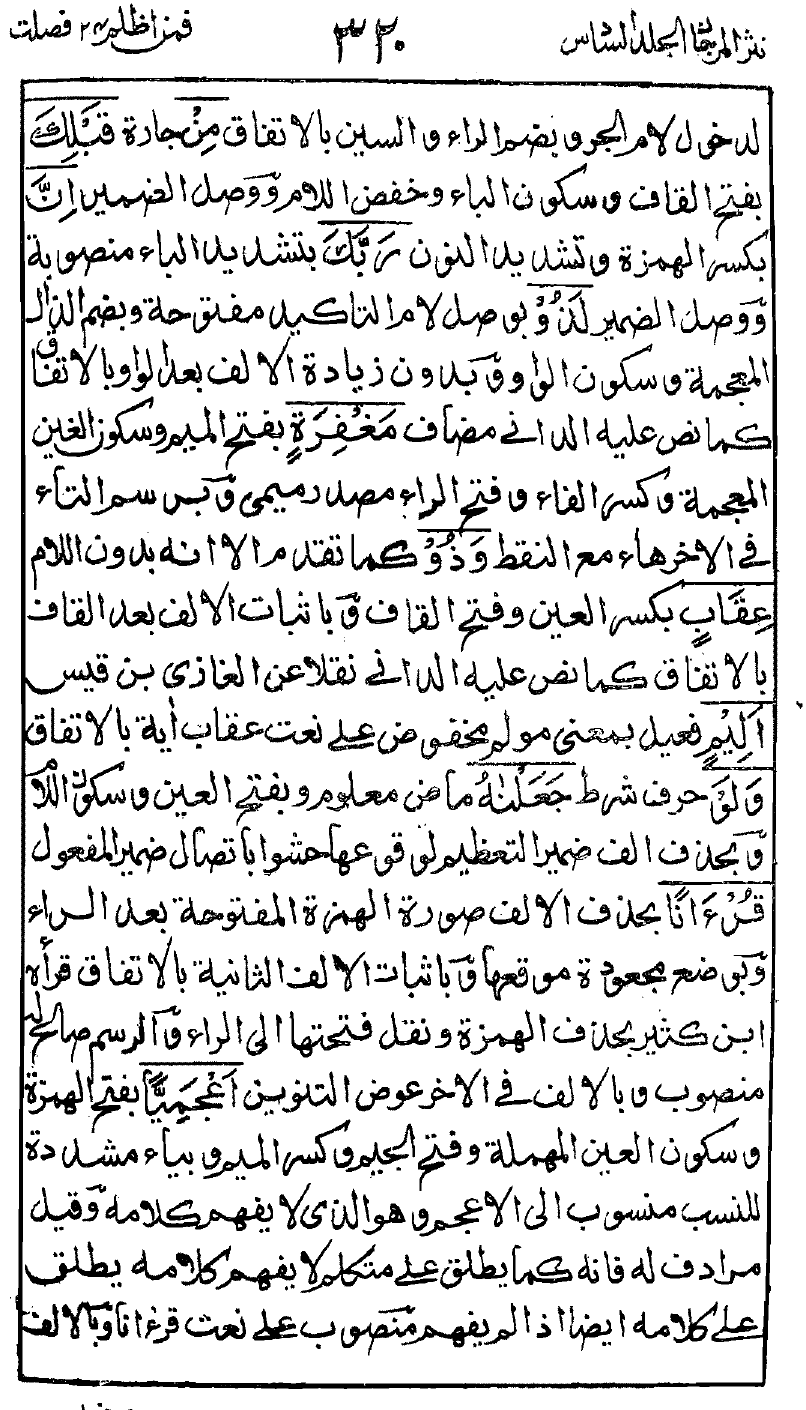 نثر المرجان المجلد السادس ٣٢٠ فمن اظلم ٢٤ فصلت
لدخول لام الجر و بضم الراء و السين بالاتفاق مِنْ جارة قَبْلِكَ
بفتح القاف و سكون الباء و خفض اللام وَوصل الضمير اِنَّ
بكسر الهمزة و تشديد النون رَبَّكَ بتشديد الباء منصوبة
وَوصل الضمير لَذُوْ بوصل لام التاكيد مفتوحة و بضم الذال
المعجمة و سكون الواو وَبدون زيادة الالف بعد الواو بالاتفاق
كما نص عليه الداني مضاف مَغْفِرَةٍ بفتح الميم و سكون الغين
المعجمة و كسر الفاء و فتح الراء مصدر ميمى وَبرسم التاء
في الاخرهاء مع النقط وَذُوْ كما تقدم الا انه بدون اللام
عِقَابٍ بكسر العين و فتح القاف وَباثبات الالف بعد القاف
بالاتفاق كما نص عليه الداني نقلا عن الغازى بن قيس
اَلِيْمٍ فعيل بمعنى مولم مخفوض على نعت عقاب أية بالاتفاق
وَلَوْ حرف شرط جَعَلْنٰهُ ماض معلوم و بفتح العين و سكون اللام
وَبحذف الف ضمير التعظيم لوقوعها حشوا باتصال ضمير المفعول
قُرْءَانًا بحذف الالف صورة الهمزة المفتوحة بعد الراء
وَبوضع مجعودة موقعها وَباثبات الالف الثانية بالاتفاق قرأه
ابن كثير بحذف الهمزة و نقل فتحتها الى الراء وَالرسم صالح له
منصوب و بالالف في الاخر عوض التنوين اَعْجَمِيًّا بفتح الهمزة
و سكون العين المهملة و فتح الجيم و كسر الميم و بياء مشددة
للنسب منسوب الى الاعجم و هو الذى لا يفهم كلامه وَقيل
مرادف له فانه كما يطلق على متكلم لا يفهم كلامه يطلق
على كلامه ايضا اذا لم يفهم منصوب على نعت قرءانا وَبالالف